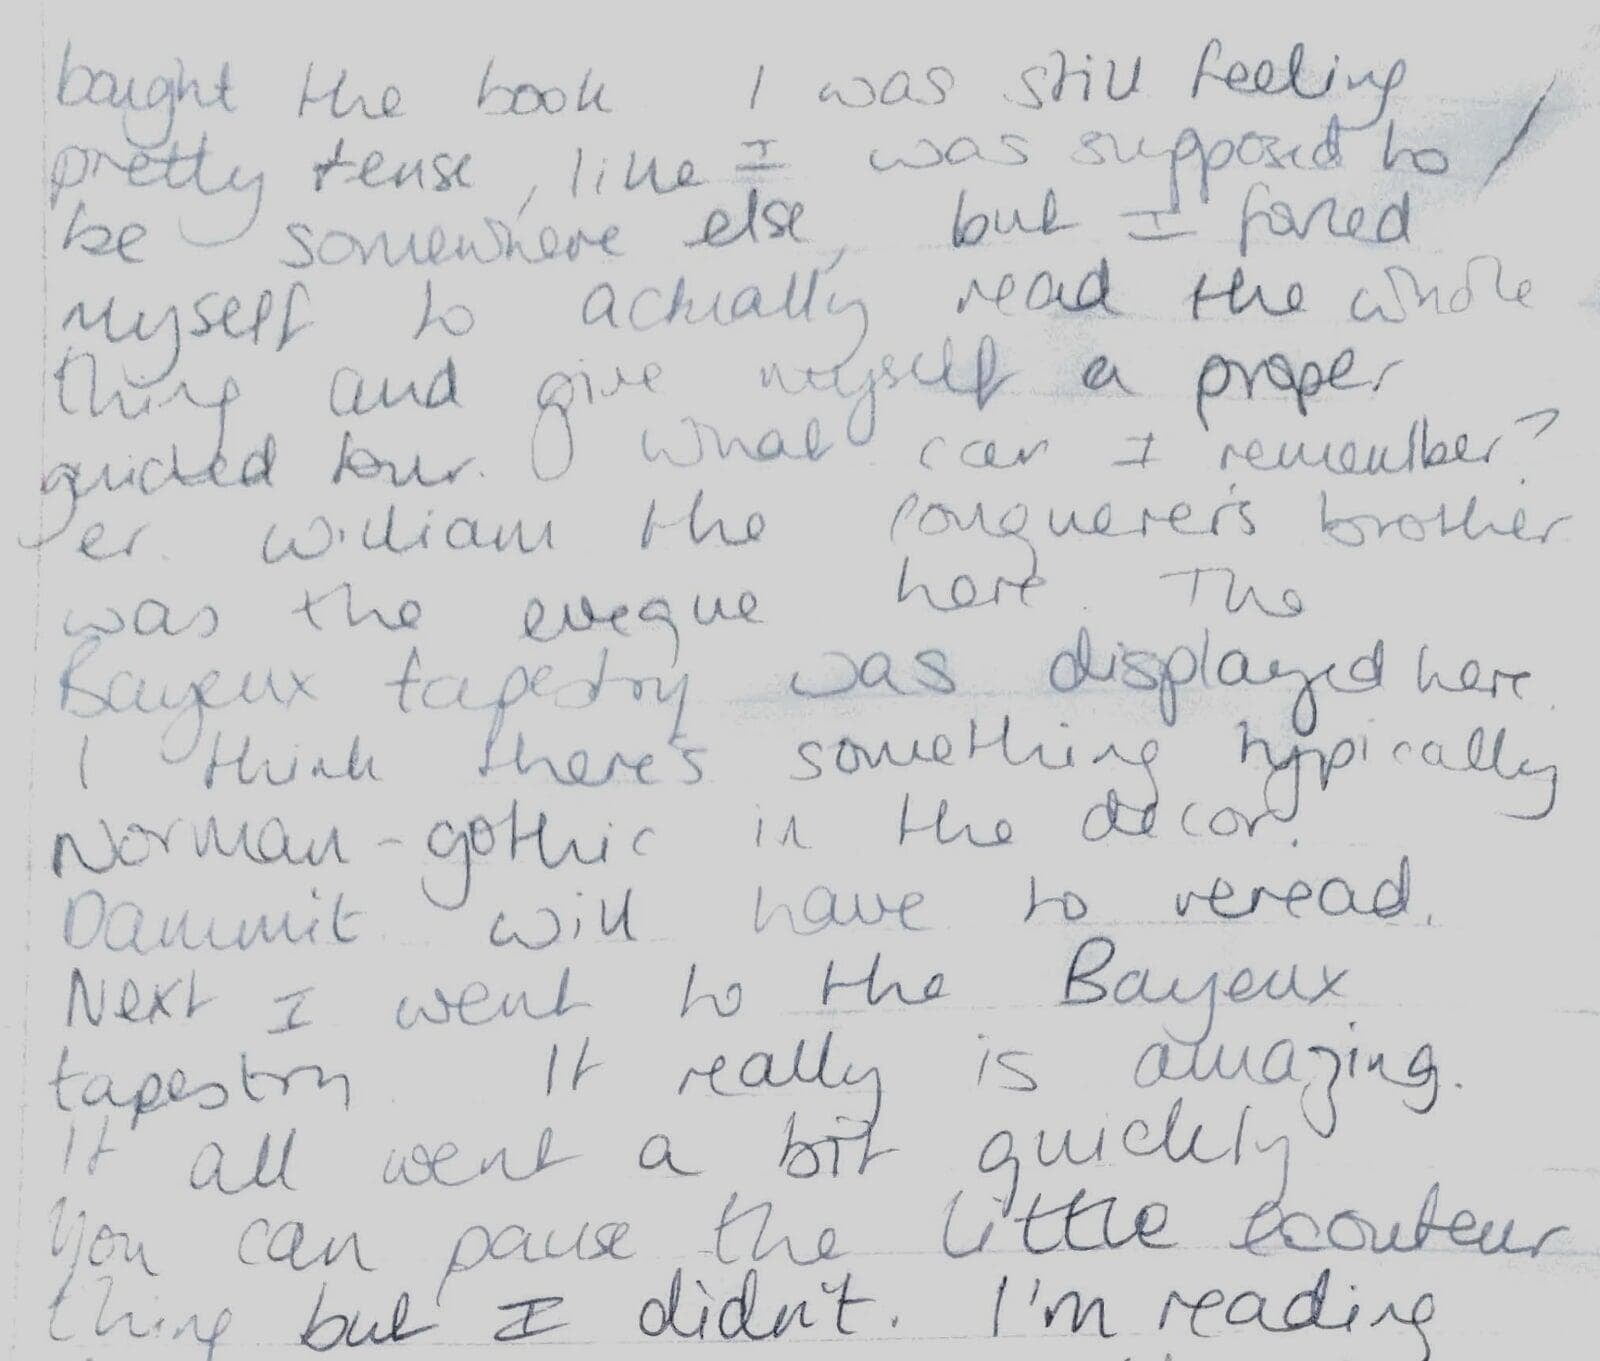 bought the book I was still feeling
pretty tense, like I was supposed to
be somewhere else, but I forced
myself to actually read the whole
thing and give myself a proper
guided tour. What can I remember?
er. William the Conquerer's brother
was the eveque here. The
Bayeux tapestry was displayed here.
I think there's something typically
Norman-gothic in the decor.
Dammit will have to reread.
Next I went to the Bayeux
tapestry. It really is amazing.
It all went a bit quickly
You can pause the little ecouteur
thing but I didn't. I'm reading